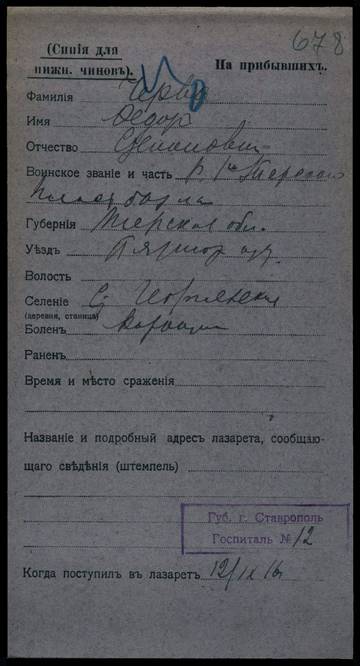 678
(Синія для
нижн. чиновъ).
На прибывшихъ.
Фамилія
Имя Федор
Отчество Степанович
Воинское званіе и часть р. 1го Терского
Пласт. бат. на
Губернія Терская обл.
Уѣздъ Пятигор
Волость
Селеніе С. Георгіевская
(деревня, станица)
Боленъ
Раненъ
Время и мѣсто сраженія
Названіе и подробный адресъ лазарета, сообщаю-
щаго свѣдѣнія (штемпель)
Губ. г. Ставрополь
Госпиталь № 12
Когда поступилъ въ лазаретъ 12/IX 16